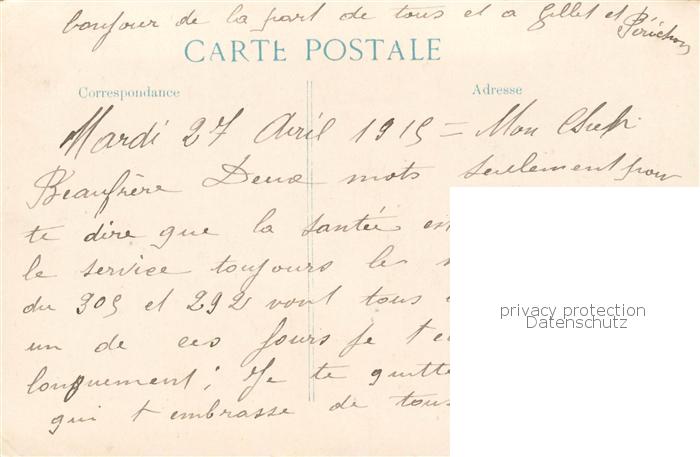 bonjour de la part de tous et a Gillet et Périchon
CARTE POSTALE
Correspondance
Adresse
Mardi 27 Avril 1915 = Mon Cher
Beaufrère Deux mots seulement pour
te dire que la santée es
le service toujours le
du 305 et 292 vont tous
un de ces jours je t
longuement; Je te quitte
qui t embrasse de tous
privacy protection
Datenschutz